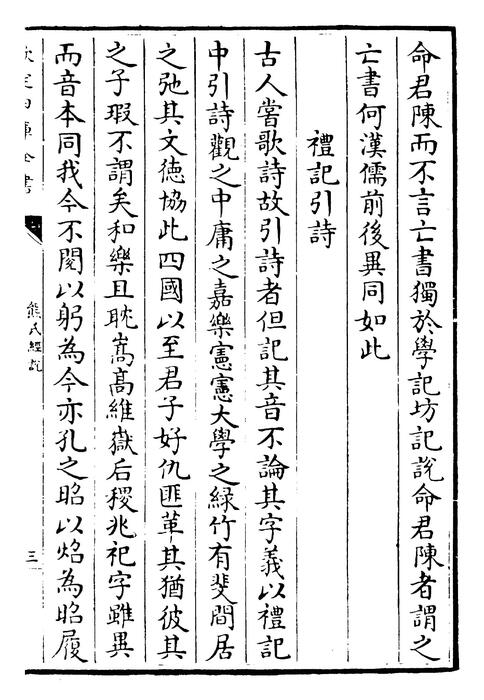 命君陳而不言亡書獨於學記坊記說命君陳者謂之
亡書何漢儒前後異同如此
禮記引詩
古人嘗歌詩故引詩者但記其音不論其字義以禮記
中引詩觀之中庸之嘉樂憲憲大學之緑竹有斐間居
之弛其文德協此四國以至君子好仇匪革其猶彼其
之子瑕不謂矣和樂且耽嵩高維嶽后稷兆祀字雖異
而音本同我今不閱以躬為今亦孔之昭以炤為昭履
欽定四庫全書
熊氏經說
三